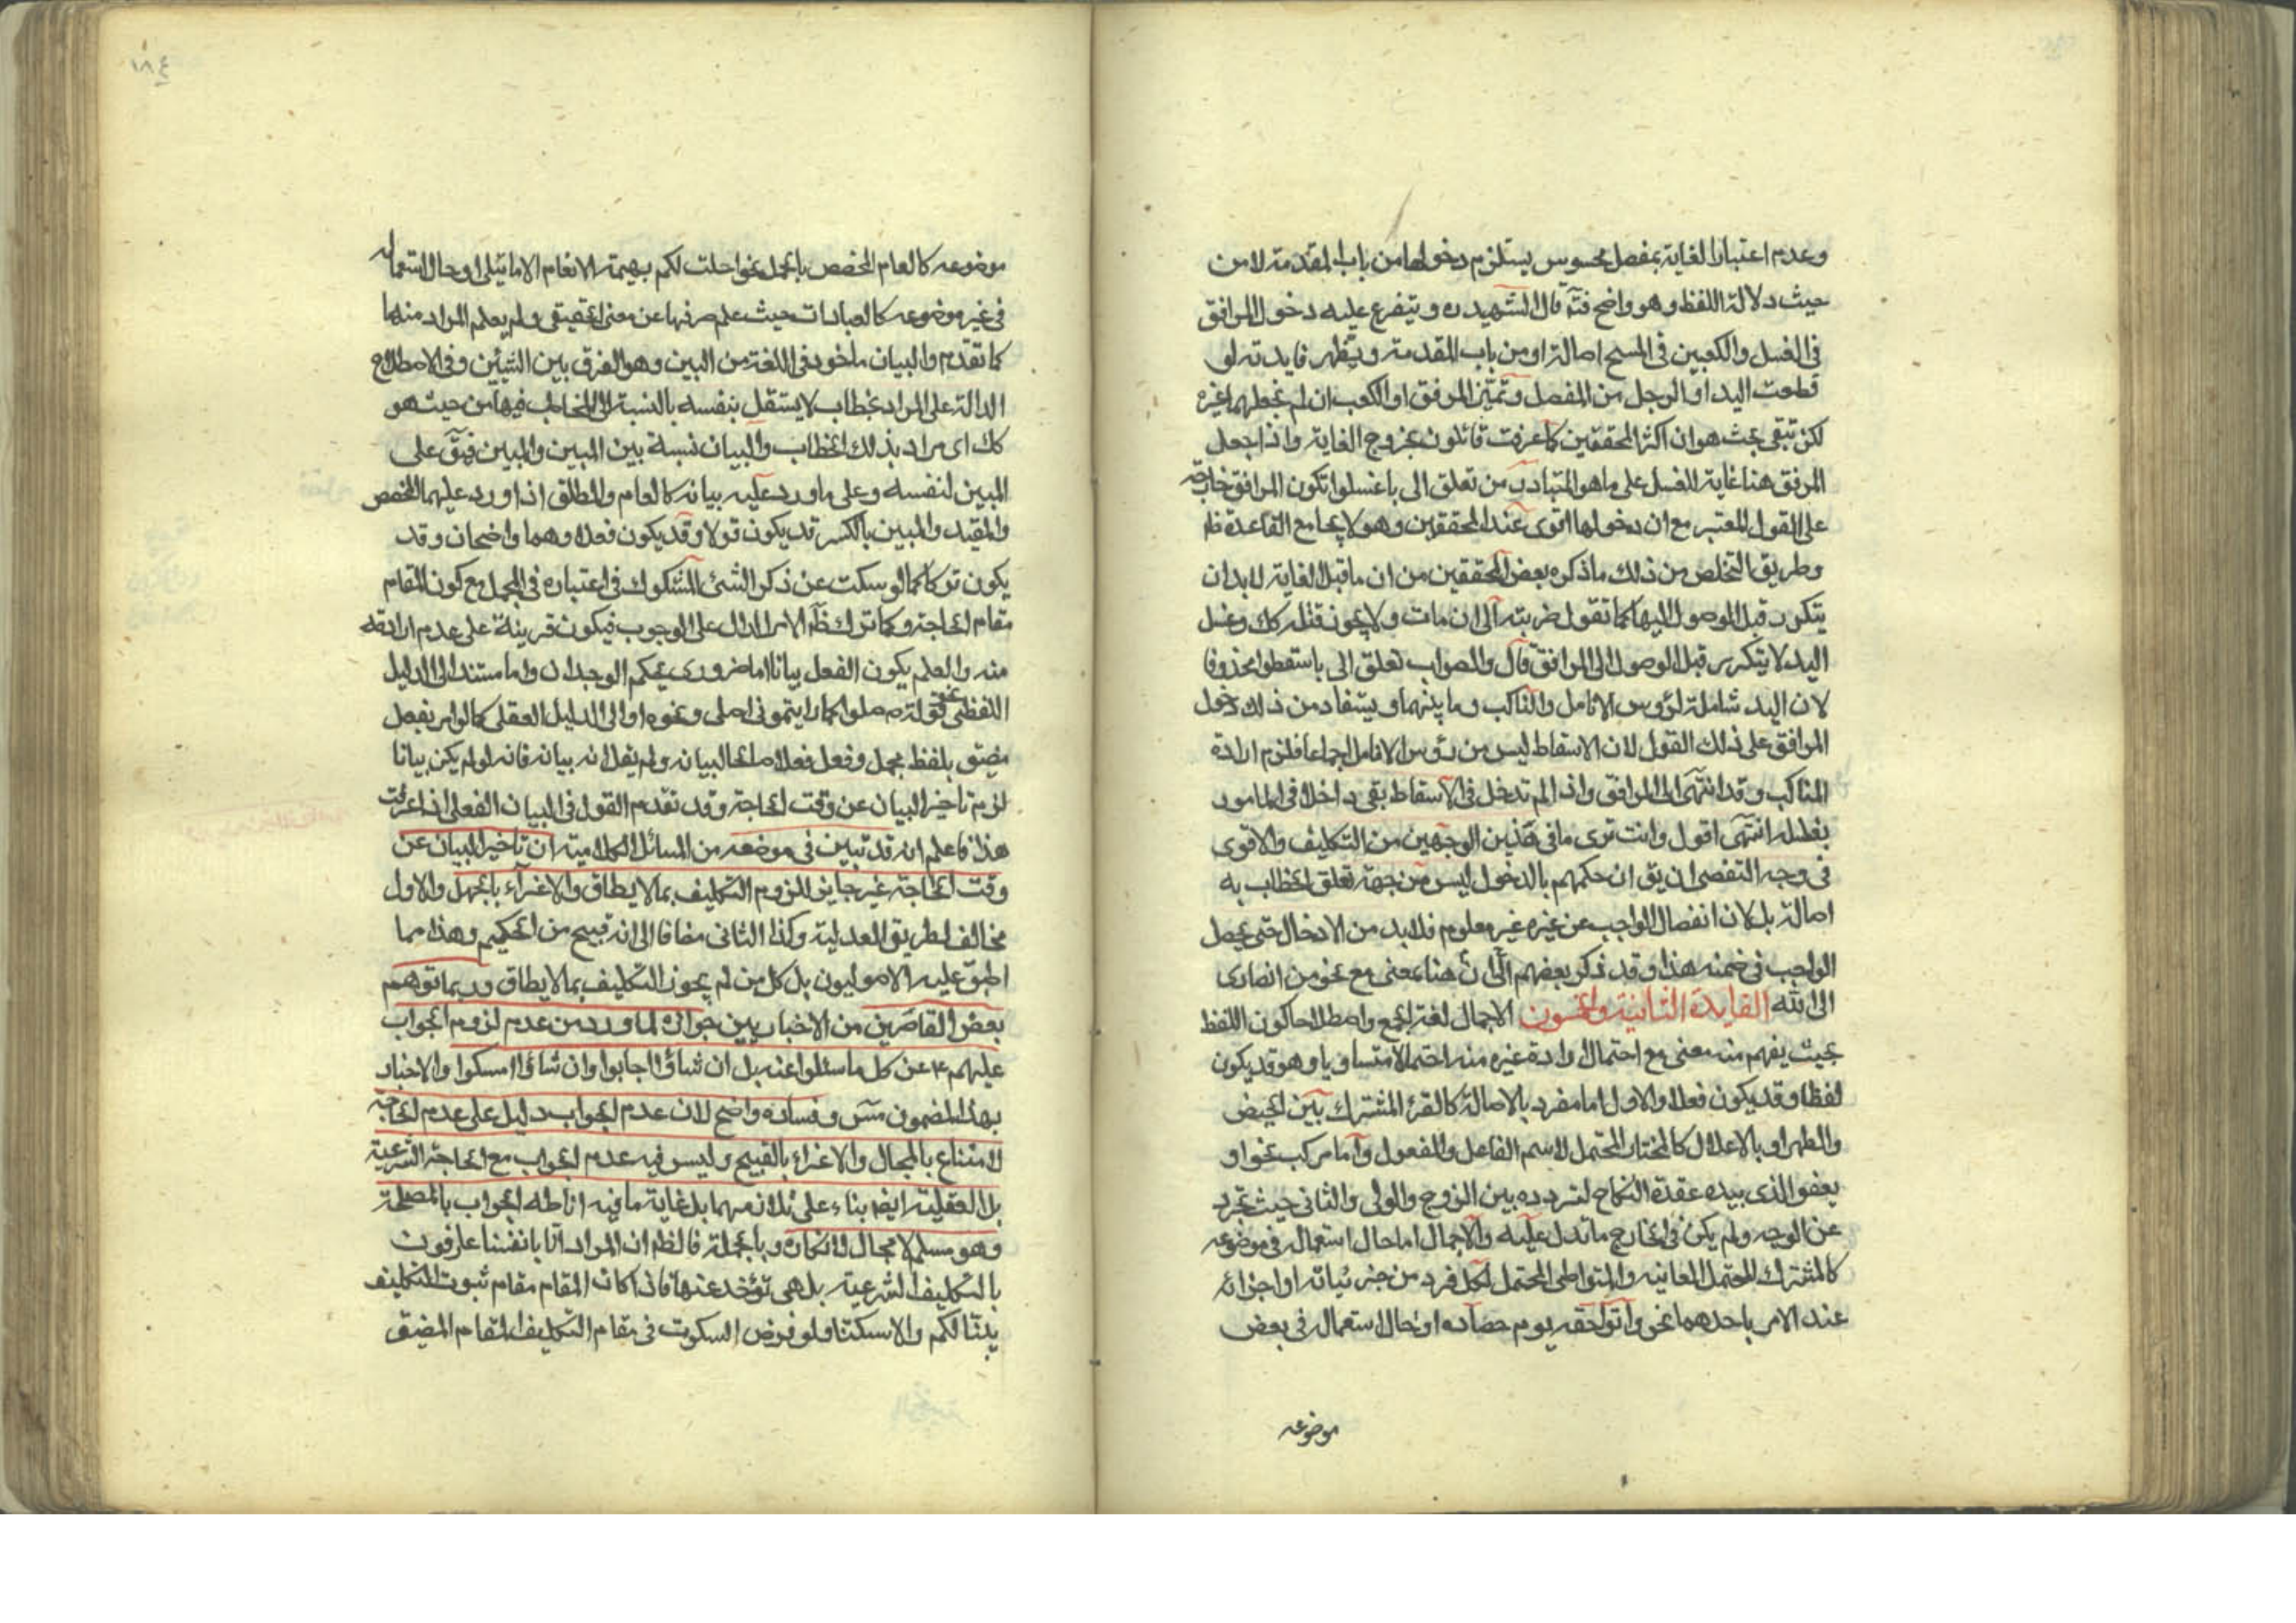 وعدم اعتبار الغاية بمفصل محسوس يستلزم دخولها من باب المقدمة لا من
حيث دلالة اللفظ وهو واضح فتم قال الشهيد ره ويتفرع عليه دخول المرافق
في الغسل والكعبين في المسح اصالة او من باب المقدمة ويظهر فايدته لو
قطعت اليد او الرجل من المفصل وتميّز المرفق او الكعب ان لم نجعلهما غيره
لكن تبقى بحث هو ان اكثر المحققين كما عرفت قائلون بخروج الغاية واذا جعل
المرفق هنا غاية للغسل على ما هو المتبادر من تعلق الى باغسلوا تكون المرافق خارجة
على القول المعتبر مع ان دخولها اقوى عند المحققين وهو لا يجامع القاعدة ظ
وطريق التخلص من ذلك ما ذكره بعض المحققين من ان ما قبل الغاية لابد ان
يتكرر قبل الوصول اليها كما تقول ضربته الى ان مات ولا يجوز قتلته كك وغسل
اليد لا يتكرر قبل الوصول الى المرافق قال والصواب تعلق الى باسقطوا محذوفا
لان اليد شاملة لرؤوس الانامل والمناكب وما بينهما ويستفاد من ذلك دخول
المرافق على ذلك القول لان الاسقاط ليس من رؤس الانامل اجماعا فلزم ارادة
المناكب وقد انتهى الى المرافق واذا لم تدخل في الاسقاط بقى داخلا في المامور
بغسله انتهى اقول وانت ترى ما في هذين الوجهين من التكليف والاقوى
في وجه التفصى ان يق ان حكمهم بالدخول ليس من جهة تعلق الخطاب به
اصالة بل لان انفصال الواجب عن غيره غير معلوم فلابد من الادخال حتى يحصل
الواجب في ضمنه هذا وقد ذكر بعضهم الى ان هنا بمعنى مع نحو من انصارى
الى الله الفايدة الثانية والخمسون الاجمال لغة الجمع واصطلاحا كون اللفظ
بحيث يفهم منه معنى مع احتمال ارادة غيره منه احتمالا متساويا وهو قد يكون
لفظا وقد يكون فعلا والاول اما مفرد بالاصالة كالقرء المشترك بين الحيض
والطهر او بالاعلال كالمختار المحتمل لاسم الفاعل والمفعول واما مركب نحو او
يعفو الذى بيده عقدة النكاح لتردده بين الزوج والولى والثانى حيث تجرد
عن الوجه ولم يكن في الخارج ما تدل عليه والاجمال اما حال استعماله في موضوعه
كالمشترك المحتمل لمعانيه والمتواطى المحتمل لكل فرد من جزئياته او اجزائه
عند الامر باحدهما نحو واتوا حقه يوم حصاده او حال استعماله في بعض
موضوعه
١٨٤
موضوعه كالعام المخصص بالمجمل نحو احلت لكم بهيمة الانعام الا ما يتلى او حال استعماله
في غير موضوعه كالعبادات حيث علم صرفها عن معنى الحقيقى ولم يعلم المراد منها
كما تقدم والبيان ماخوذ في اللغة من البين وهو الفرق بين الشيئين وفي الاصطلاح
الدالة على المراد بخطاب لا يستقل بنفسه بالنسبة الى المخاطب فيها من حيث هو
كك اى مراد بذلك الخطاب والبيان نسبة بين المبين والمبين فيق على
المبين لنفسه وعلى ما ورد عليه بيانه كالعام والمطلق اذا ورد عليهما المخصص
والمقيد والمبين بالكسر قد يكون قولا وقد يكون فعلا وهما واضحان وقد
يكون تركا كما لو سكت عن ذكر الشئ المشكوك في اعتباره في المجمل مع كون المقام
مقام الحاجة وكما ترك ظم الامر الدال على الوجوب فيكون قرينة على عدم ارادته
منه والعلم بكون الفعل بيانا اما ضرورى بحكم الوجدان واما مستند الى الدليل
اللفظى نحو قوله ص صلوا كما رايتمونى اصلى ونحوه او الى الدليل العقلى كما لو امر بفعل
مضيق بلفظ مجمل وفعل فعلا صالحا لبيانه ولم يقل انه بيانه فانه لو لم يكن بيانا
لزم تاخير البيان عن وقت الحاجة وقد تقدم القول في البيان الفعلى اذا عرفت
هذا فاعلم انه قد تبين في موضعه من المسائل الكلامية ان تاخير البيان عن
وقت الحاجة غير جايز للزوم التكليف بما لا يطاق والاغراء بالجهل والاول
مخالف لطريق العدلية وكذا الثانى مضافا الى انه قبيح من الحكيم وهذا مما
اطبق عليه الاصوليون بل كل من لم يجوز التكليف بما لا يطاق وربما توهم
بعض القاصرين من الاخباريين جوازه لما ورد من عدم لزوم الجواب
عليهم ع عن كل ما سئلوا عنه بل ان شاؤا اجابوا وان شاؤا امسكوا والاخبار
بهذا المضمون مس وفساده واضح لان عدم الجواب دليل على عدم الحاجة
لامتناع بالمحال والاغراء بالقبيح وليس فيه عدم الجواب مع الحاجة الشرعية
بل العقلية ايضا بناء على تلازمهما بل غاية ما فيه اناطه الجواب بالمصلحة
وهو مسلم لا مجال لانكاره وبالجملة فالظم ان المراد انا بانفسنا عارفون
بالتكليف الشرعية بل هى تؤخذ عنها فاذا كان المقام مقام ثبوت التكليف
بينا لكم والا سكتنا ولو فرض السكوت في مقام التكليف المقام المضيق